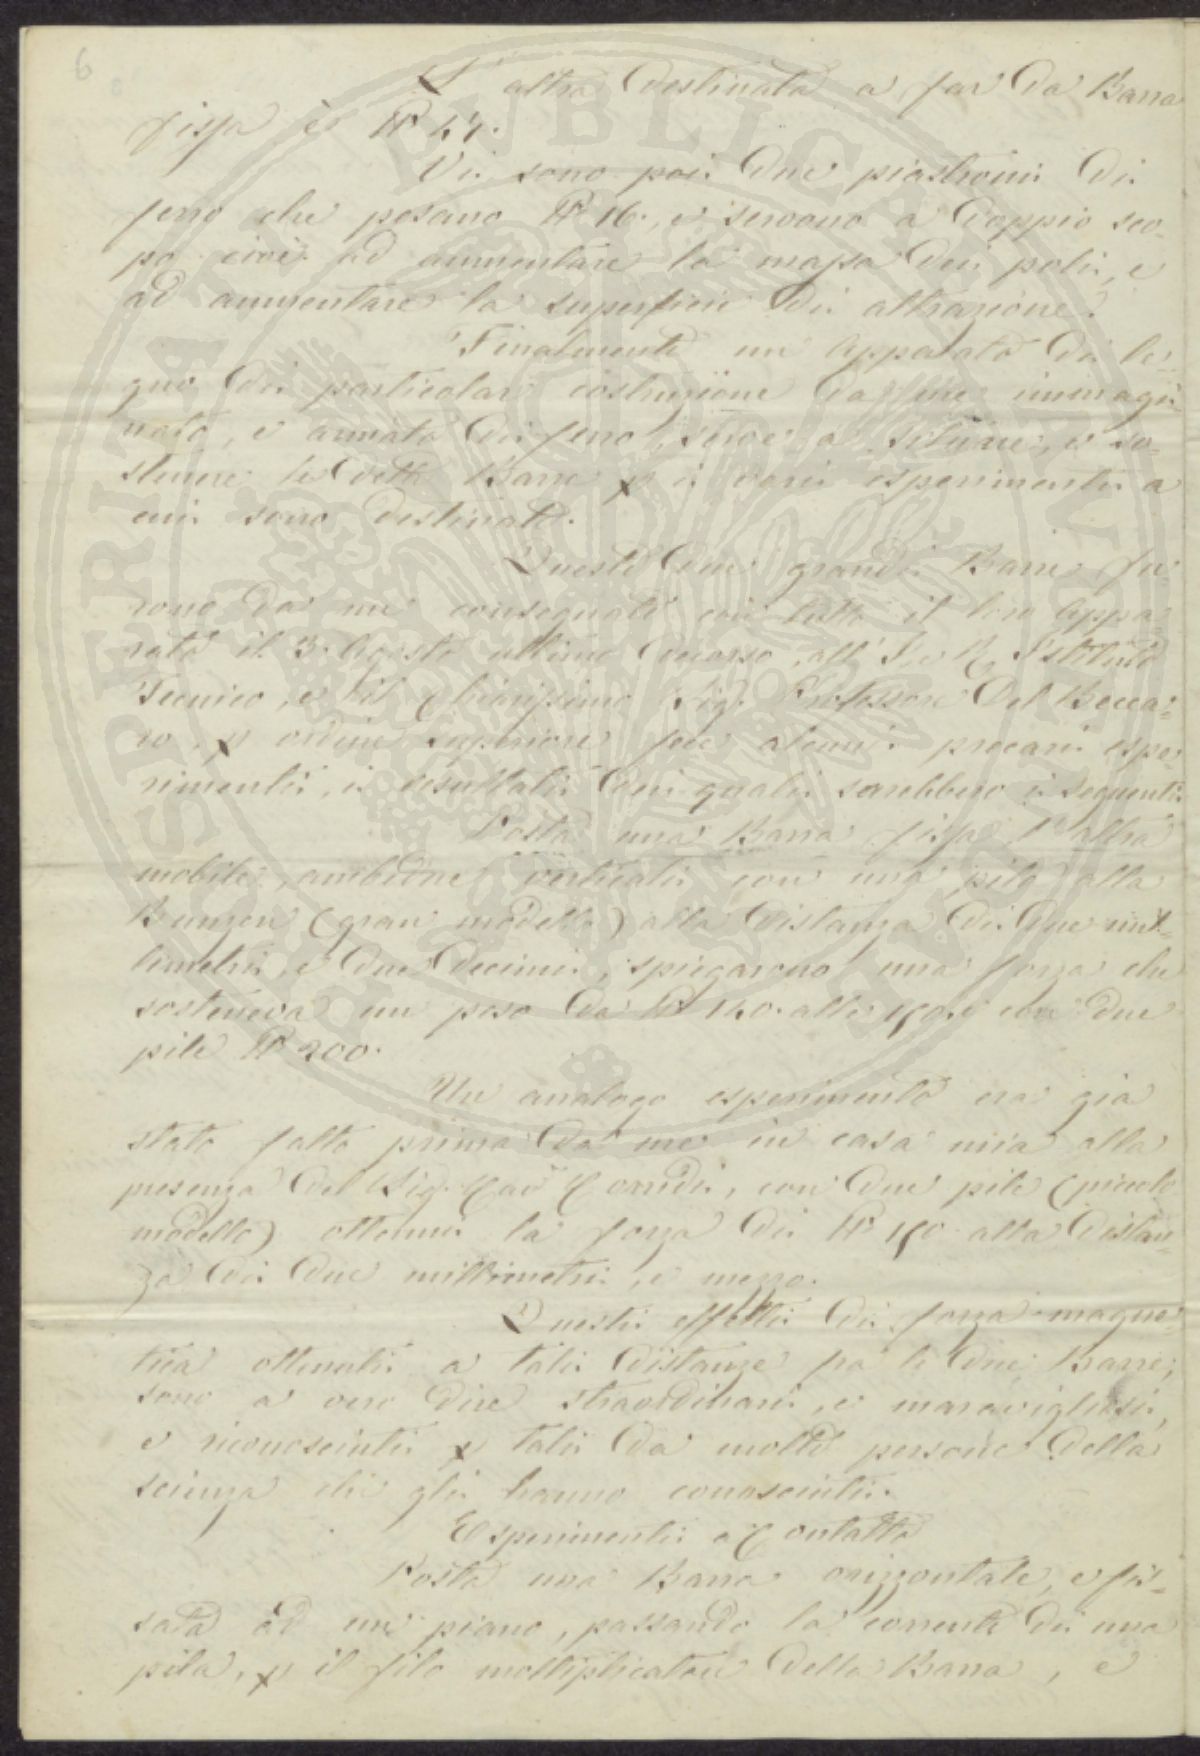 6
L'altra destinata a far da Barra
fissa è ₶ 47.
Vi sono poi due piastroni di
ferro che pesano ₶ 16., e servono a doppio sco-
po cioè ad aumentare la massa dei poli, e
ad aumentare la superficie di attrazione.
Finalmente un Apparato di le-
gno di particolar costruzione da me immagi-
nato, e armato di ferro, serve a situare, e so-
stenere le dette Barre p i varii esperimenti a
cui sono destinate.
Queste due grandi Barre fu-
rono da me consegnate con tutto il loro Appa-
rato il 3. Agosto ultimo decorso, all'I. e R. Istituto
Tecnico, e il Chiarissimo Sig. Professore Del Becca-
ro, p ordine superiore fece alcuni precari espe-
rimenti, i resultati dei quali sarebbero i seguenti
Posta una Barra fissa l'altra
mobile, ambedue verticali con una pila alla
Bunzen (gran modello) alla distanza di due mil-
limetri, e due decimi, spiegarono una forza che
sosteneva un peso da ₶ 140. alle 150. e con due
pile ₶ 200.
Un analogo esperimento era già
stato fatto prima da me in casa mia alla
presenza del Sig. Cav. Corridi, con due pile (piccolo
modello) ottenni la forza di ₶ 150 alla distan-
za di due millimetri, e mezzo.
Questi effetti di forza magne-
tica ottenuti a tali distanze fra le due Barre,
sono a vero dire straordinari, e maravigliosi,
e riconosciuti p tali da molte persone della
scienza che gli hanno conosciuti.
Esperimenti a Contatto
Posta una Barra orizzontale, e fis-
sata ad un piano, passando la corrente di una
pila, p il filo moltiplicatore della Barra, e
PROSPERITATI PUBLICAE AUGENDAE